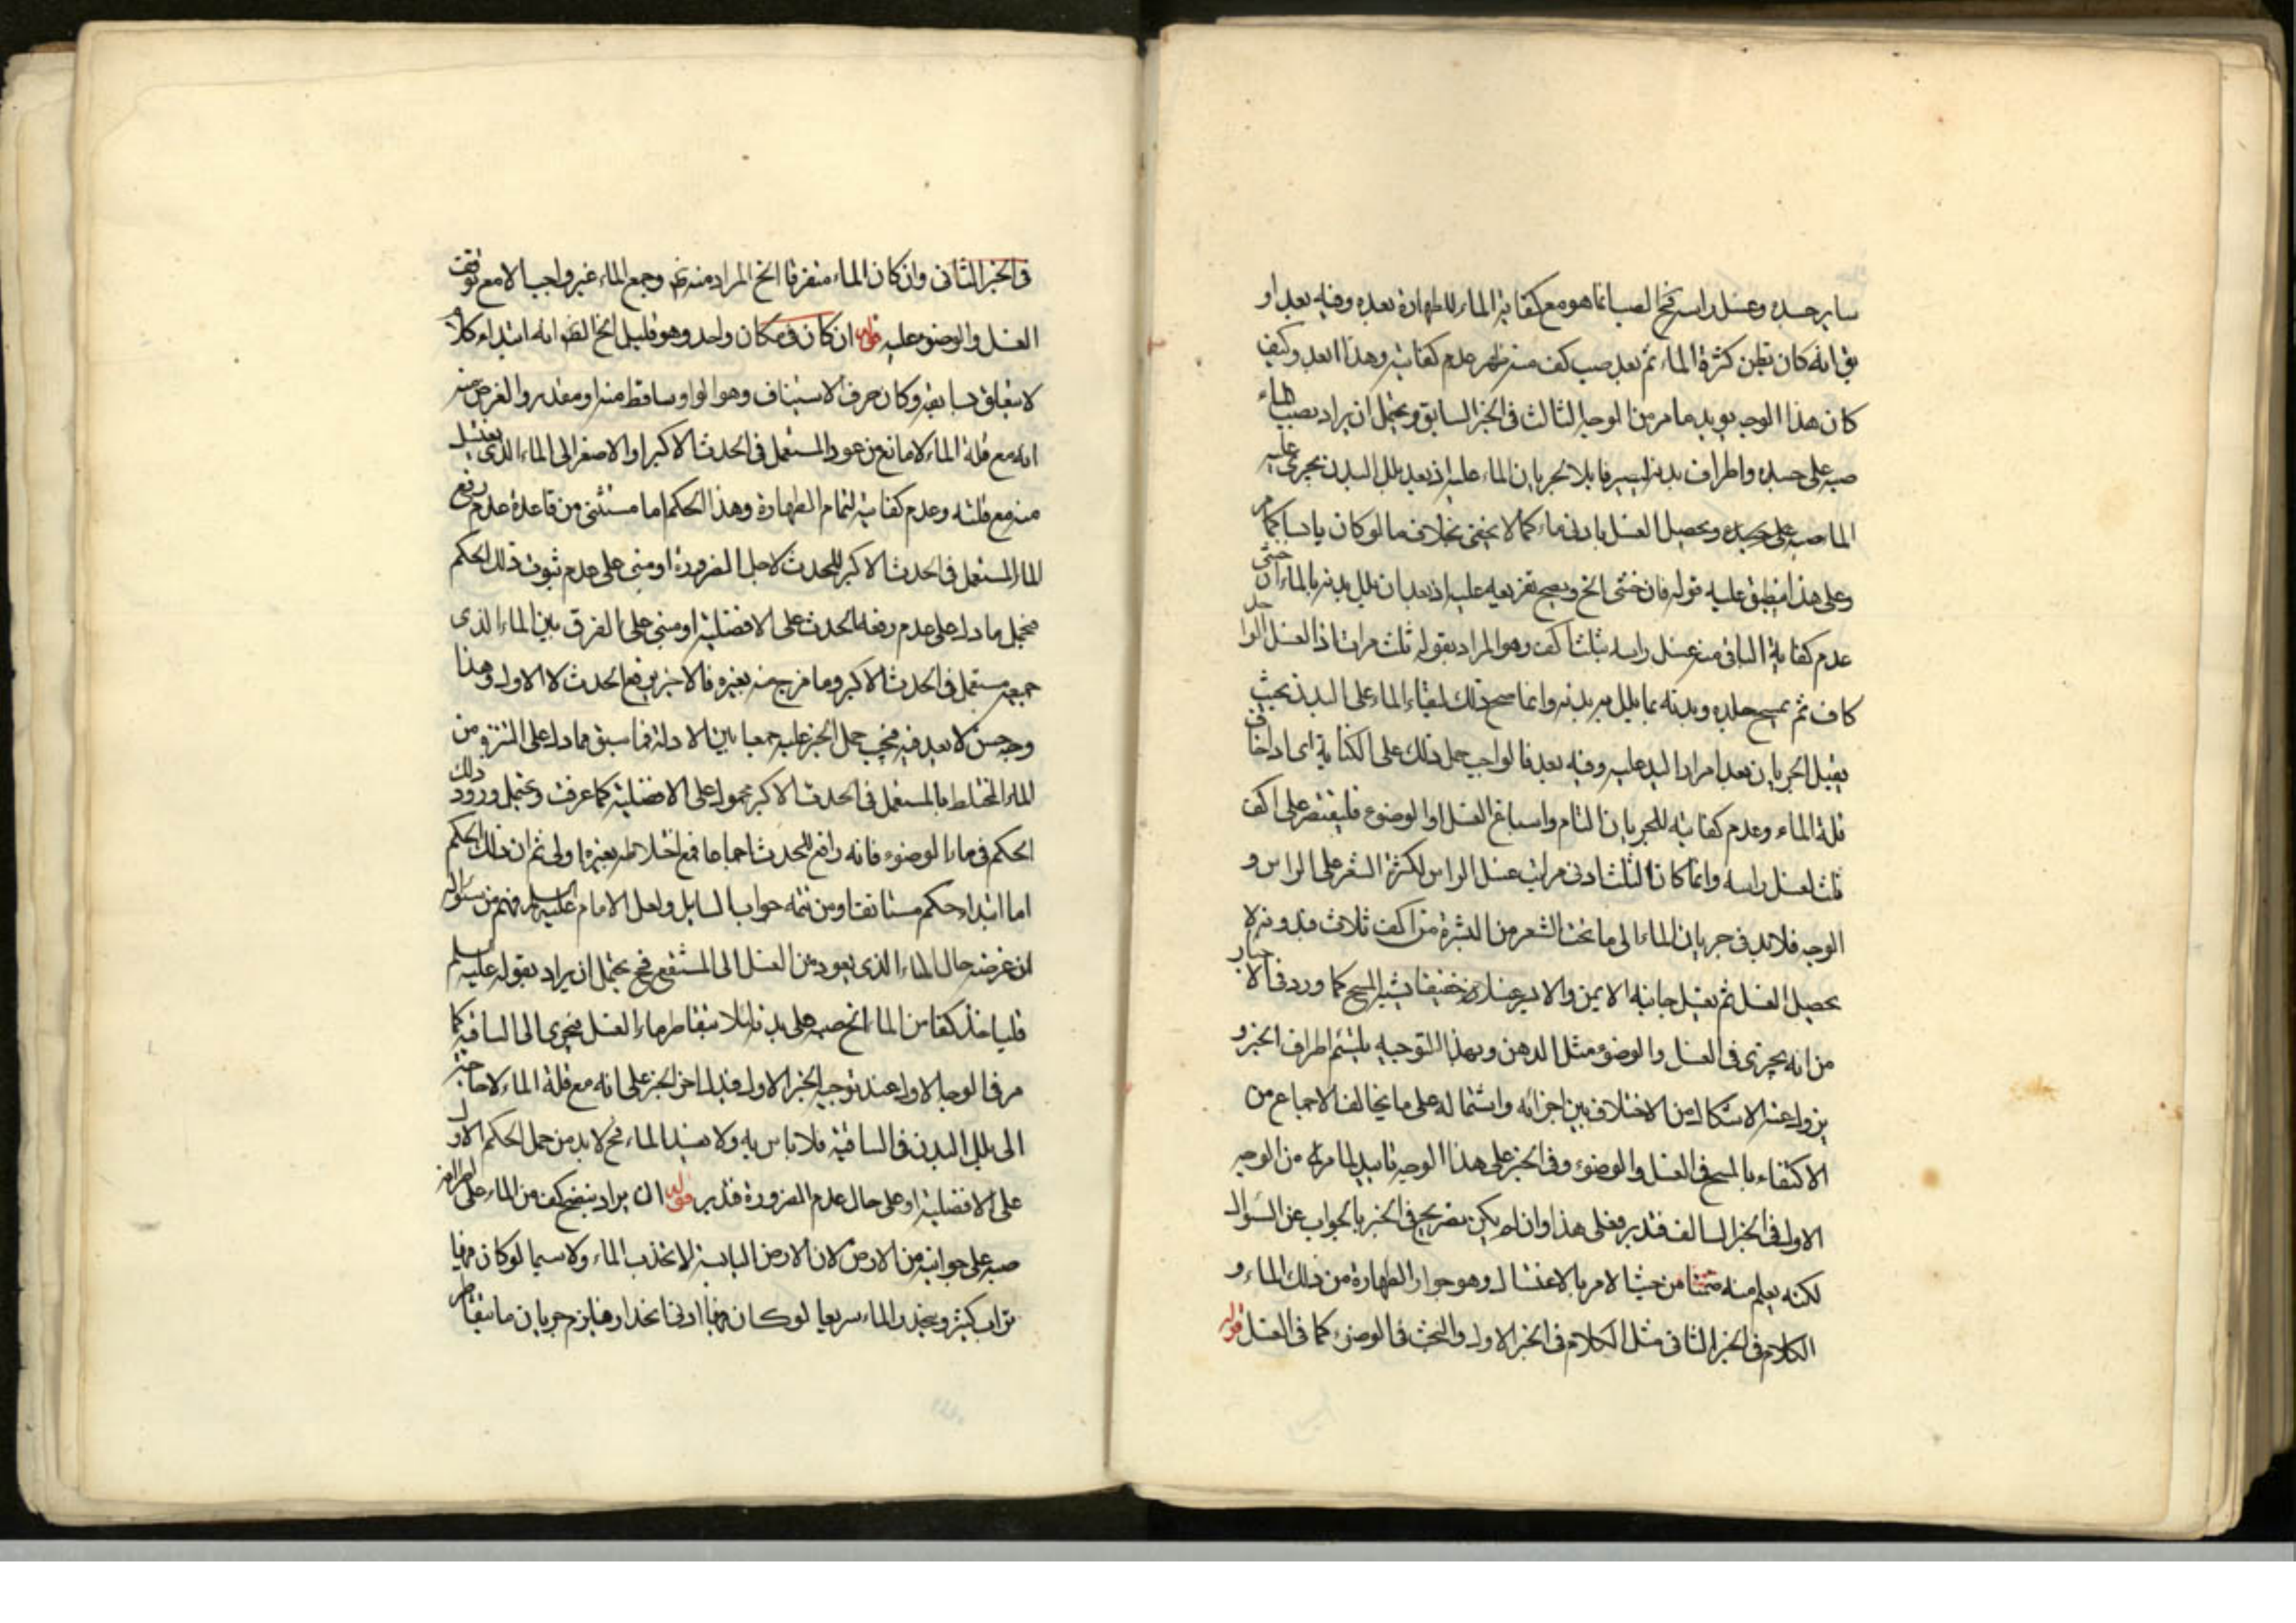 ساير جسده وغسل راسه فح الصب انما هو مع كفاية الماء للطهارة بعده وفيه بعد او
يق انه كان يظن كثرة الماء ثم بعد صب كف منه ظهر عدم كفايته وهذا ابعد وكيف
كان هذا الوجه يويد ما مر من الوجه الثالث فى الخبر السابق ويحتمل ان يراد بصب الماء
صبه على جسده واطراف بدنه ليسير قابلا لجريان الماء عليه اذ بعد بلل البدن يجرى عليه
الماء صبه على جسده ويحصل الغسل بادنى ماء كما لا يخفى بخلاف ما لو كان يابسا كما مر
وعلى هذا ينطبق عليه قوله فان خشى الخ ويصح تفريعه عليه اذ بعد ان بلل بدنه بالماء ان خشى
عدم كفاية الباقى منه غسل راسه بثلث اكف وهو المراد بقوله ثلث مرات اذ الغسل الواحد
كاف ثم يمسح جلده وبدنه بما بلل به بدنه وانما صح ذلك لبقاء الماء على البدن بحيث
يقبل الجريان بعد امرار اليد عليه وفيه بعد فالواجب حمل ذلك على الكناية اى اذا خاف
قلة الماء وعدم كفايته للجريان التام واسباغ الغسل او الوضوء فليقتصر على اكف
ثلث لغسل راسه وانما كان الثلث ادنى مراتب غسل الراس لكثرة الشعر على الراس و
الوجه فلا بد فى جريان الماء الى ما تحت الشعر من البشرة من اكف ثلاث فبدونه لا
يحصل الغسل ثم يغسل جانبه الايمن والايسر غسلا خفيفا يشبه المسح كما ورد فى الاخبار
من انه يجزى فى الغسل والوضوء مثل الدهن وبهذا التوجيه يلتئم اطراف الخبر و
يزول عنه الاشكال من الاختلاف بين اجزائه واشتماله على ما يخالف الاجماع من
الاكتفاء بالمسح فى الغسل والوضوء وفى الخبر على هذا الوجه تاييد لما مر من الوجه
الاول فى الخبر السالف فتدبر فعلى هذا وان لم يكن تصريح فى الخبر بالجواب عن السؤال
لكنه يعلم منه ضمنا من حيث الامر بالاغتسال وهو جواز الطهارة من ذلك الماء و
الكلام فى الخبر الثانى مثل الكلام فى الخبر الاول والبحث فى الوضوء كما فى الغسل قوله
فى الخبر الثانى وان كان الماء متفرقا الخ المراد منه وجمع الماء غير واجب الا مع توقف
الغسل والوضوء عليه قوله ان كان فى مكان واحد وهو قليل الخ الظ انه ابتداء كلام
لا يتعلق بسابقه وكان حرف الاستيناف وهو الواو ساقط منه او مقدر والغرض منه
انه مع قلة الماء لا مانع من عود المستعمل فى الحدث الاكبر او الاصغر الى الماء الذى يغتسل
منه مع قلته وعدم كفايته لتمام الطهارة وهذا الحكم اما مستثنى من قاعدة عدم رفع
الماء المستعمل فى الحدث الاكبر للحدث لاجل الضرورة او مبنى على عدم ثبوت ذلك الحكم
فيحمل ما دل على عدم رفعه الحدث على الافضلية او مبنى على الفرق بين الماء الذى
جميعه مستعمل فى الحدث الاكبر وما مزج منه بغيره فالاخير يرفع الحدث لا الاول وهذا
وجه حسن لا بعد فيه فيجب حمل الخبر عليه جمعا بين الادلة فما سبق مما دل على التنزه من
الماء المختلط بالمستعمل فى الحدث الاكبر محمول على الافضلية كما عرفت ويحتمل ورود ذلك
الحكم فى ماء الوضوء فانه رافع للحدث اجماعا فمع اختلاطه بغيره اولى ثم ان ذلك الحكم
اما ابتداء حكم مستانف او من تتمة جواب السايل ولعل الامام عليه السلم فهم من سؤاله
ان غرضه حال الماء الذى يعود من الغسل الى المستنقع فح يحتمل ان يراد بقوله عليه السلم
فلياخذ كفا من الماء الخ صبه على بدنه لئلا يتقاطر ماء الغسل فيجرى الى الساقية كما
مر فى الوجه الاول عند توجيه الخبر الاول فيدل اخر الخبر على انه مع قلة الماء لا حاجة
الى بلل البدن فى الساقية فلا باس به ولا يفسد الماء فح لا بد من حمل الحكم الاول
على الافضلية او على حال عدم الضرورة فتدبر قوله ان يراد بنضح كف من الماء على
صبه على جوانبه من الارض لان الارض اليابسة لا تجذب الماء ولا سيما لو كان فيها
تراب كثير ويجذب الماء سريعا لو كان فيها ادنى انحدار فيلزم جريان ما يتقاطر